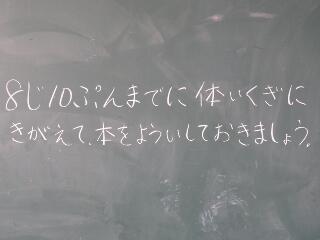 8じ10ぷんまでに体いくぎに
きがえて、本をよういしておきましょう。